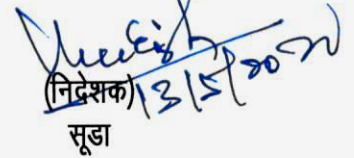 (निदेशक) 13/5/2020
सूडा